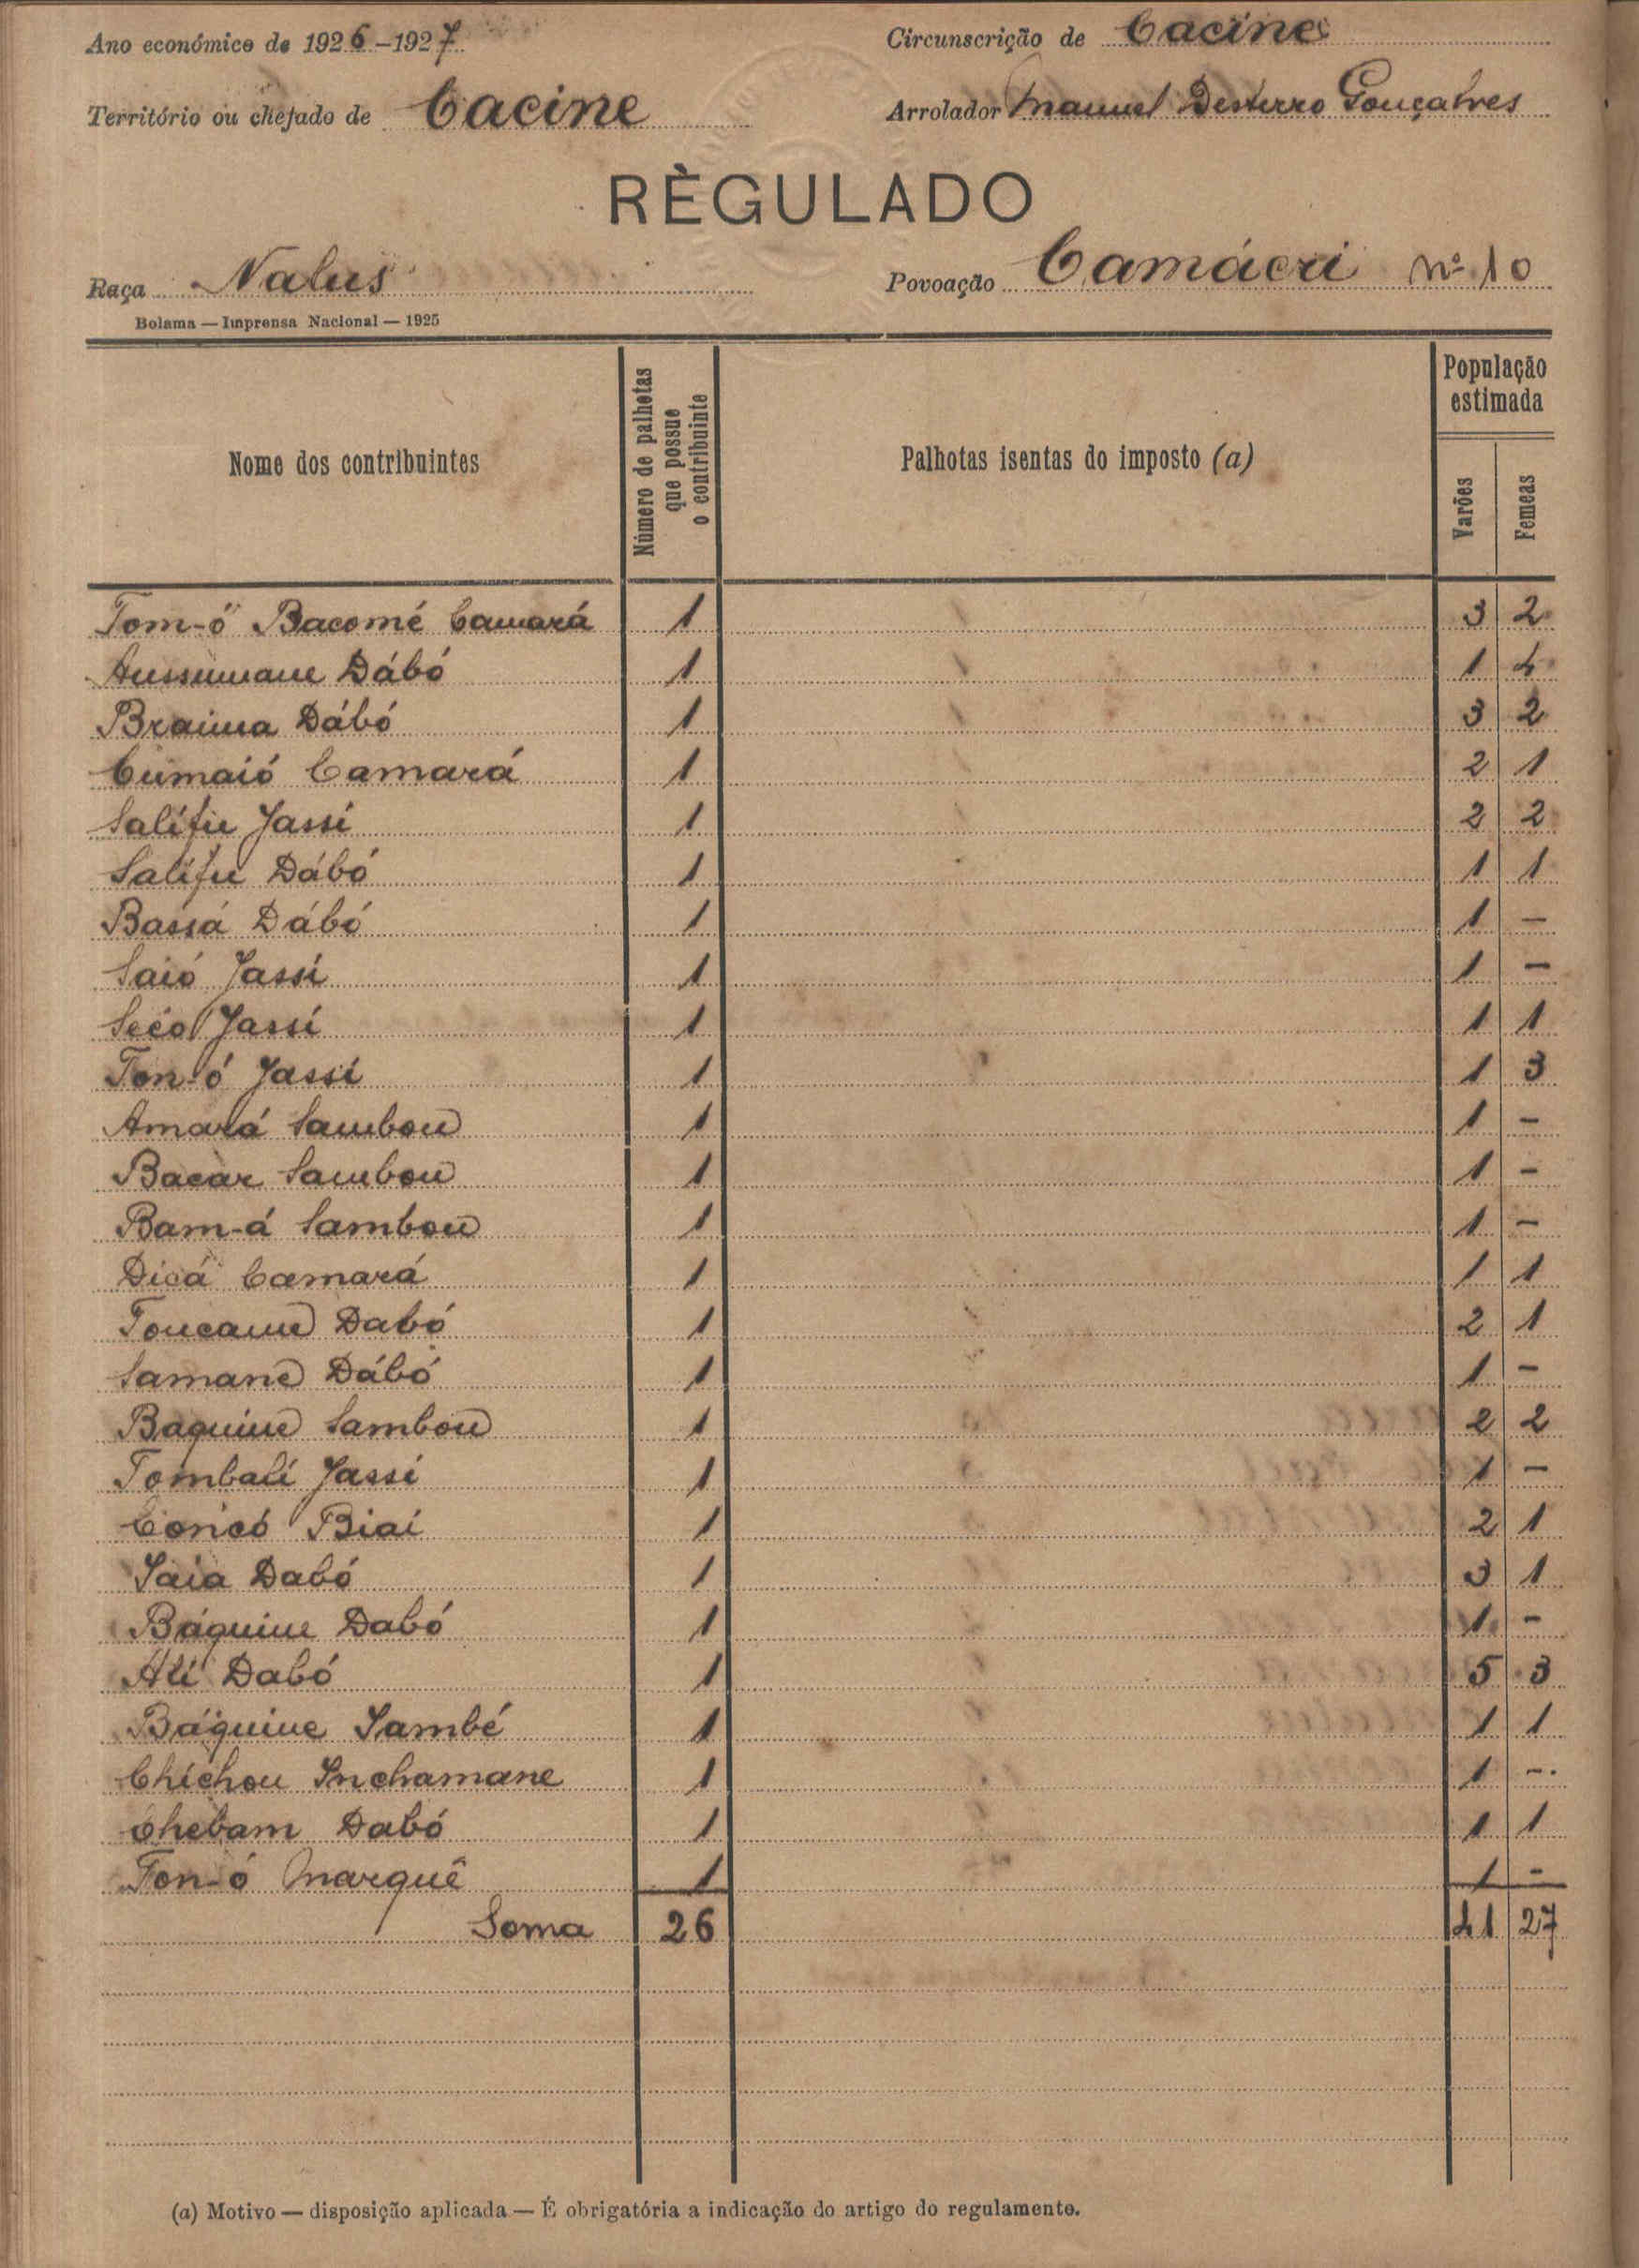 Ano económico de 1926-1927
Circunscrição de Cacine
Território ou chefado de Cacine
Arrolador Manuel Desterro Gonçalves
RÈGULADO
Raça Nalus
Povoação Camácri nº 10
Bolama — Imprensa Nacional — 1925
Nome dos contribuintes
Número de palhotas que possue o contribuinte
Palhotas isentas do imposto (a)
População estimada
Varões
Femeas
Tom-ó Bacomé Camará 1 3 2
Aussumane Dábó 1 1 4
Braima Dábó 1 3 2
Cumaió Camará 1 2 1
Salifu Jassi 1 2 2
Salifu Dábó 1 1 1
Bassá Dábó 1 1 -
Saió Jassi 1 1 -
Secó Jassi 1 1 1
Ton-ó Jassi 1 1 3
Amará Sambou 1 1 -
Bacar Sambou 1 1 -
Bam-á Sambou 1 1 -
Dicá Camará 1 1 1
Toucane Dabó 1 2 1
Samane Dábó 1 1 -
Baquine Sambou 1 2 2
Tombali Jassi 1 1 -
Concó Biai 1 2 1
Saia Dabó 1 3 1
Báquine Dabó 1 1 -
Ali Dabó 1 5 3
Báquine Sambé 1 1 1
Chichou Inchamane 1 1 -
Chebam Dabó 1 1 1
Ton-ó Marquê 1 1 -
Soma 26 41 27
(a) Motivo — disposição aplicada — É obrigatória a indicação do artigo do regulamento.